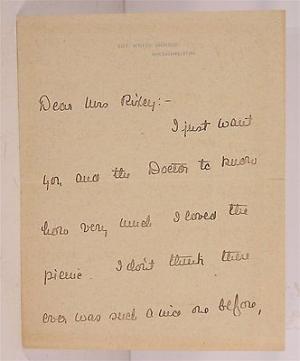 THE WHITE HOUSE
WASHINGTON
Dear Mrs Risley:-
I just want
you, and the Doctor to know
how very much I loved the
picnic. I don't think there
ever was such a nice one before,